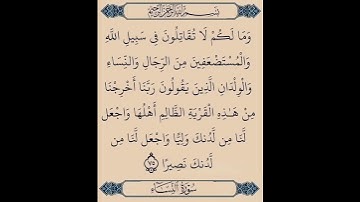 بسم الله الرحمن الرحيم
وَمَا لَكُمْ لَا تُقَاتِلُونَ فِى سَبِيلِ اللَّهِ
وَالْمُسْتَضْعَفِينَ مِنَ الرِّجَالِ وَالنِّسَاءِ
وَالْوِلْدَانِ الَّذِينَ يَقُولُونَ رَبَّنَا أَخْرِجْنَا
مِنْ هَـٰذِهِ الْقَرْيَةِ الظَّالِمِ أَهْلُهَا وَاجْعَل
لَّنَا مِن لَّدُنكَ وَلِيًّا وَاجْعَل لَّنَا مِن
لَّدُنكَ نَصِيرًا ٧٥
سُورَةُ النِّسَاءِ